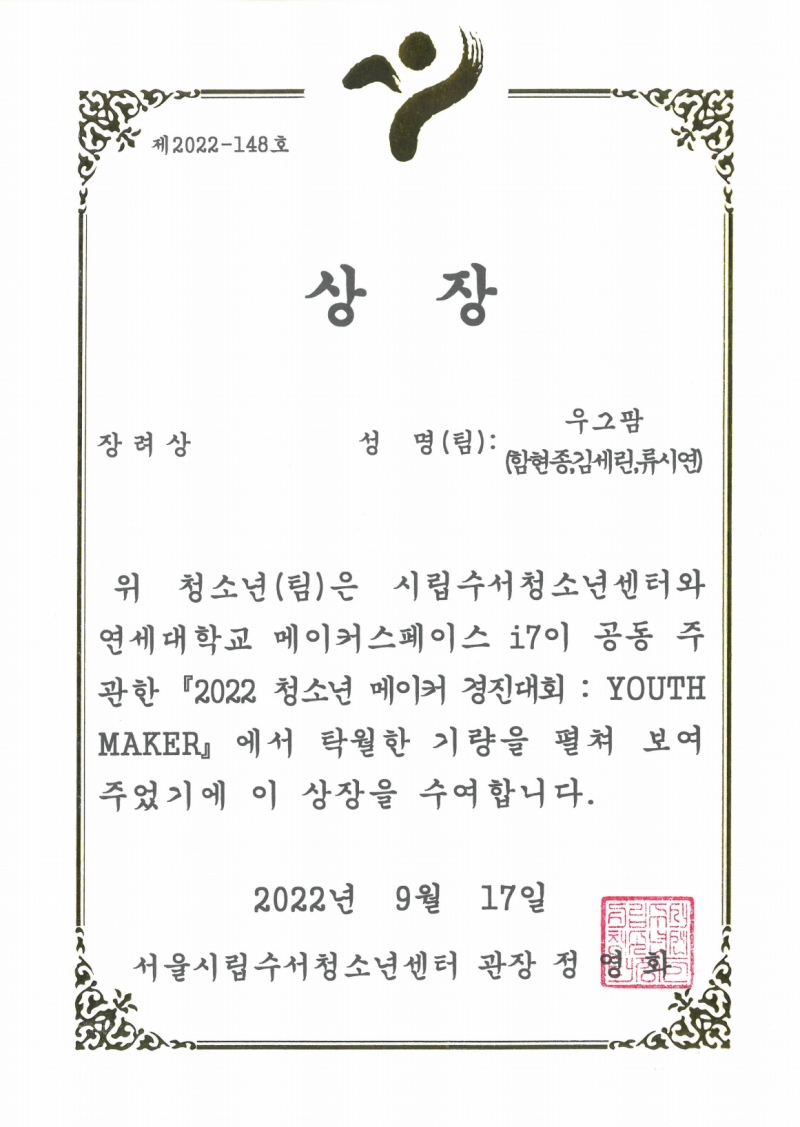 제2022-148호
상 장
장려상 성 명(팀): 우그팜
(함현종,김세린,류시연)
위 청소년(팀)은 시립수서청소년센터와
연세대학교 메이커스페이스 i7이 공동 주
관한 『2022 청소년 메이커 경진대회 : YOUTH
MAKER』에서 탁월한 기량을 펼쳐 보여
주었기에 이 상장을 수여합니다.
2022년 9월 17일
서울시립수서청소년센터 관장 정 영 화